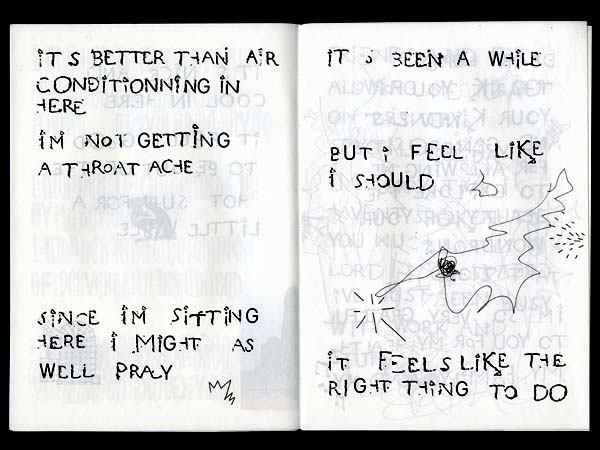 iTS BETTER THAN AiR
CONDiTiONNiNG iN
HERE
iM NOT GETTiNG
A THROAT ACHE
SINCE iM SiTTiNG
HERE i MiGHT AS
WELL PRAY
iT S BEEN A WHiLE
BUT i FEEL LiKE
i SHOULD
iT FEELS LiKE THE
RiGHT THiNG TO DO